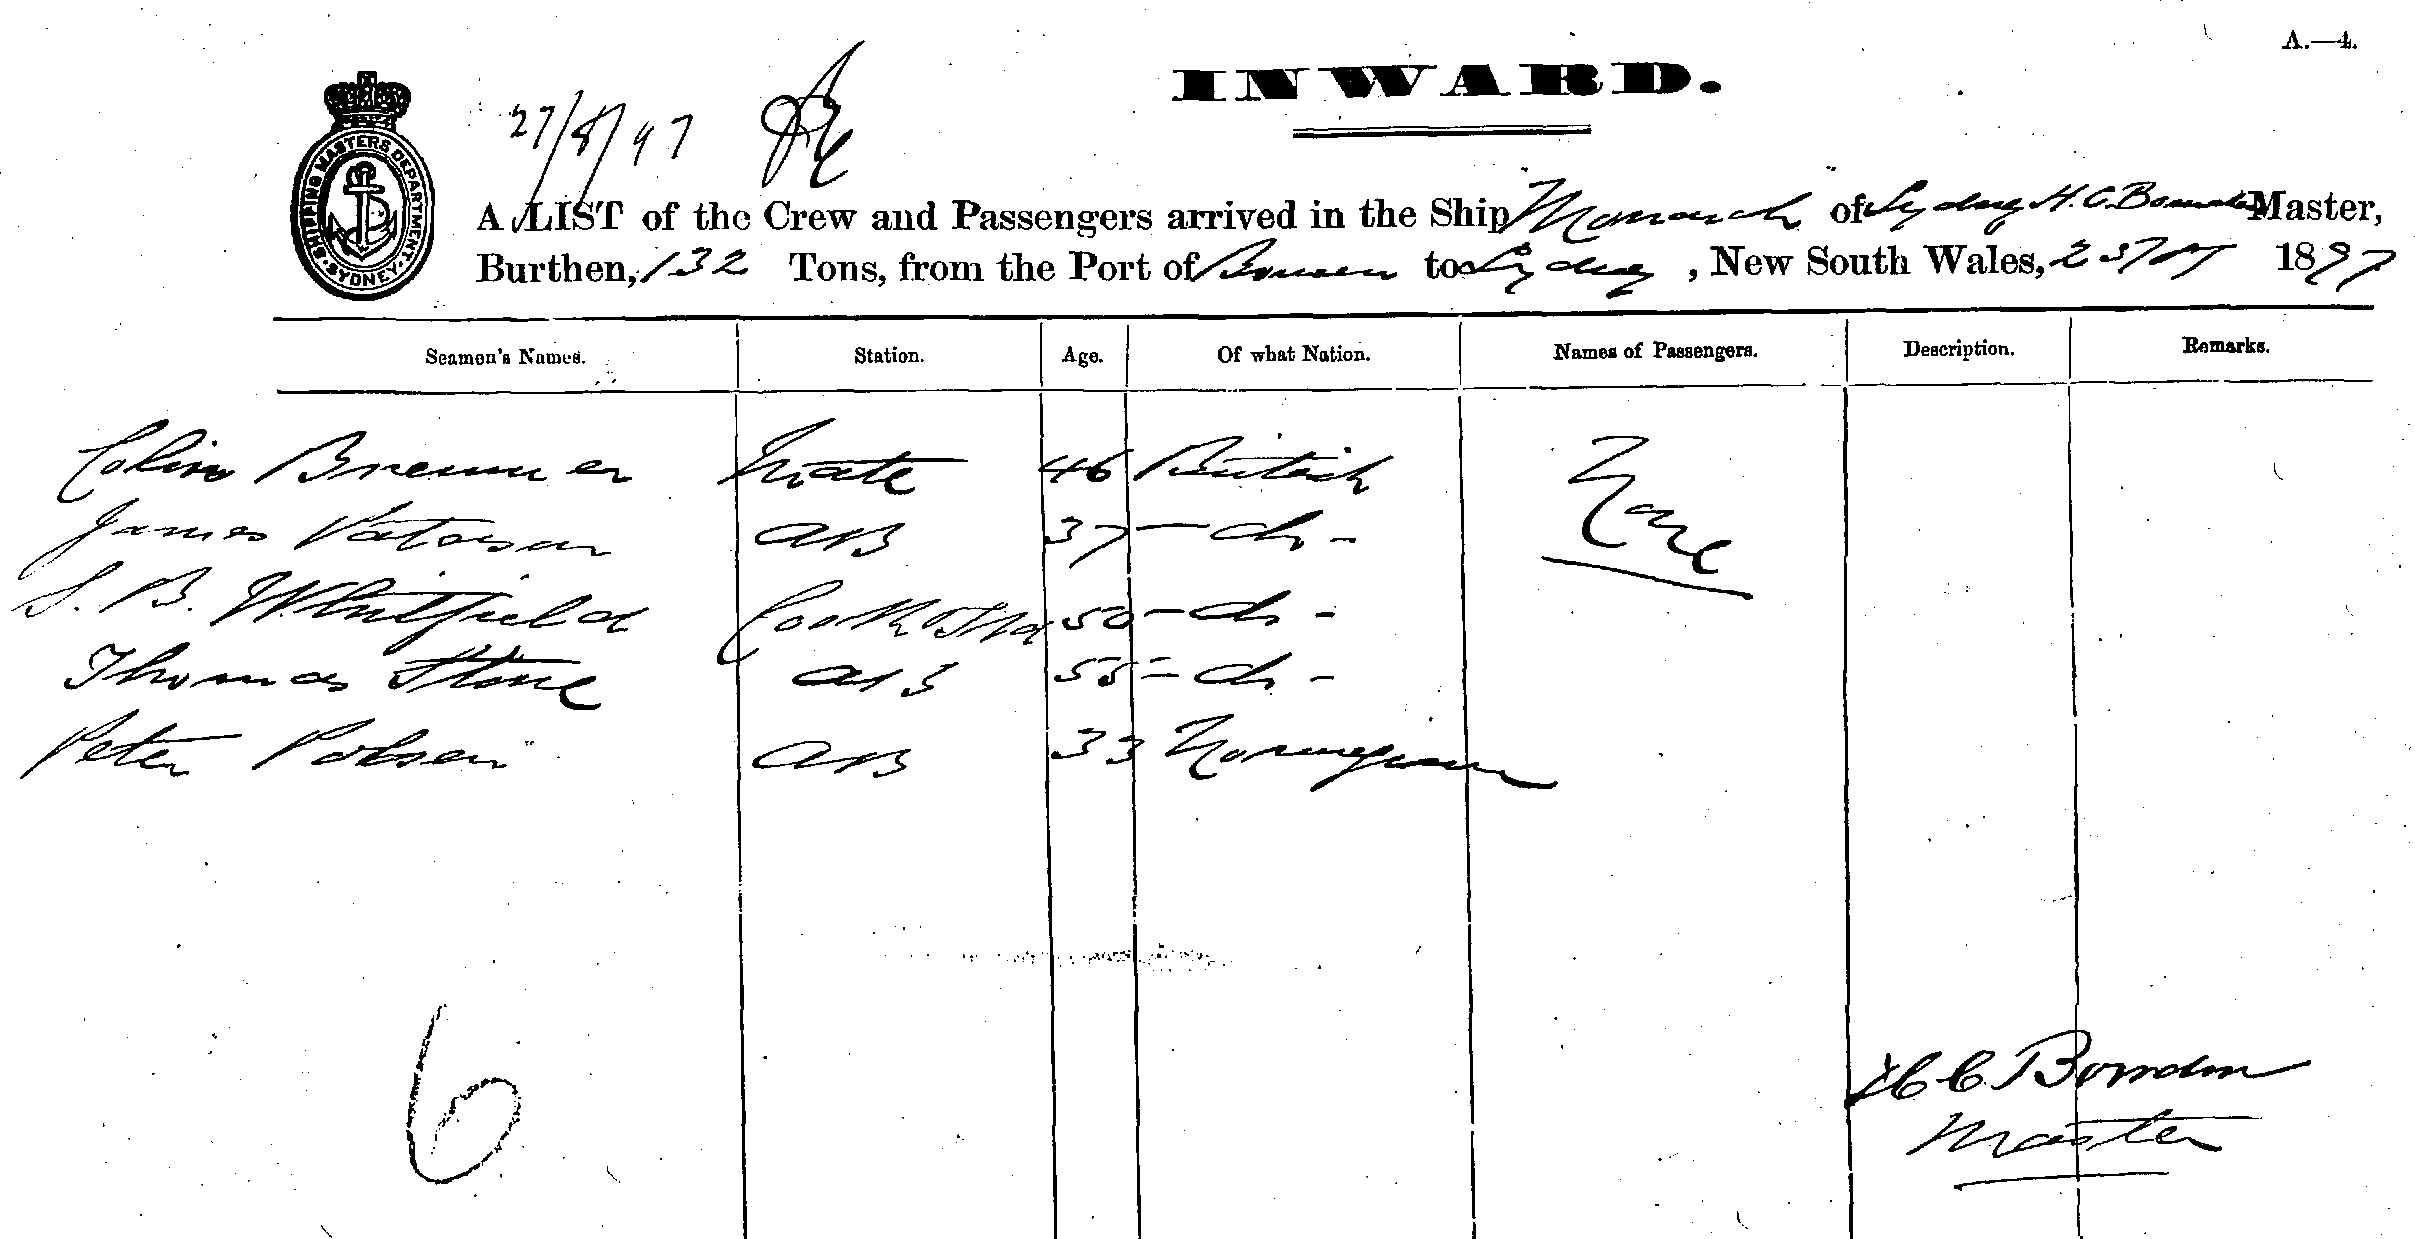 A.—4.
INWARD.
27/8/97
SHIPPING MASTERS DEPARTMENT SYDNEY
A LIST of the Crew and Passengers arrived in the Ship "Monarch" of Sydney H. C. Bowden Master,
Burthen, 132 Tons, from the Port of to Sydney, New South Wales, 1897
Seamen's Names. Station. Age. Of what Nation. Names of Passengers. Description. Remarks.
Colin Bremner Mate 46 British None
James AB 37 - do -
S. B. Whitfield Cook & Std 50 - do -
Thomas Stone AB 55 - do -
Peter Polsen AB 33 Norwegian
6
H C Bowden
Master